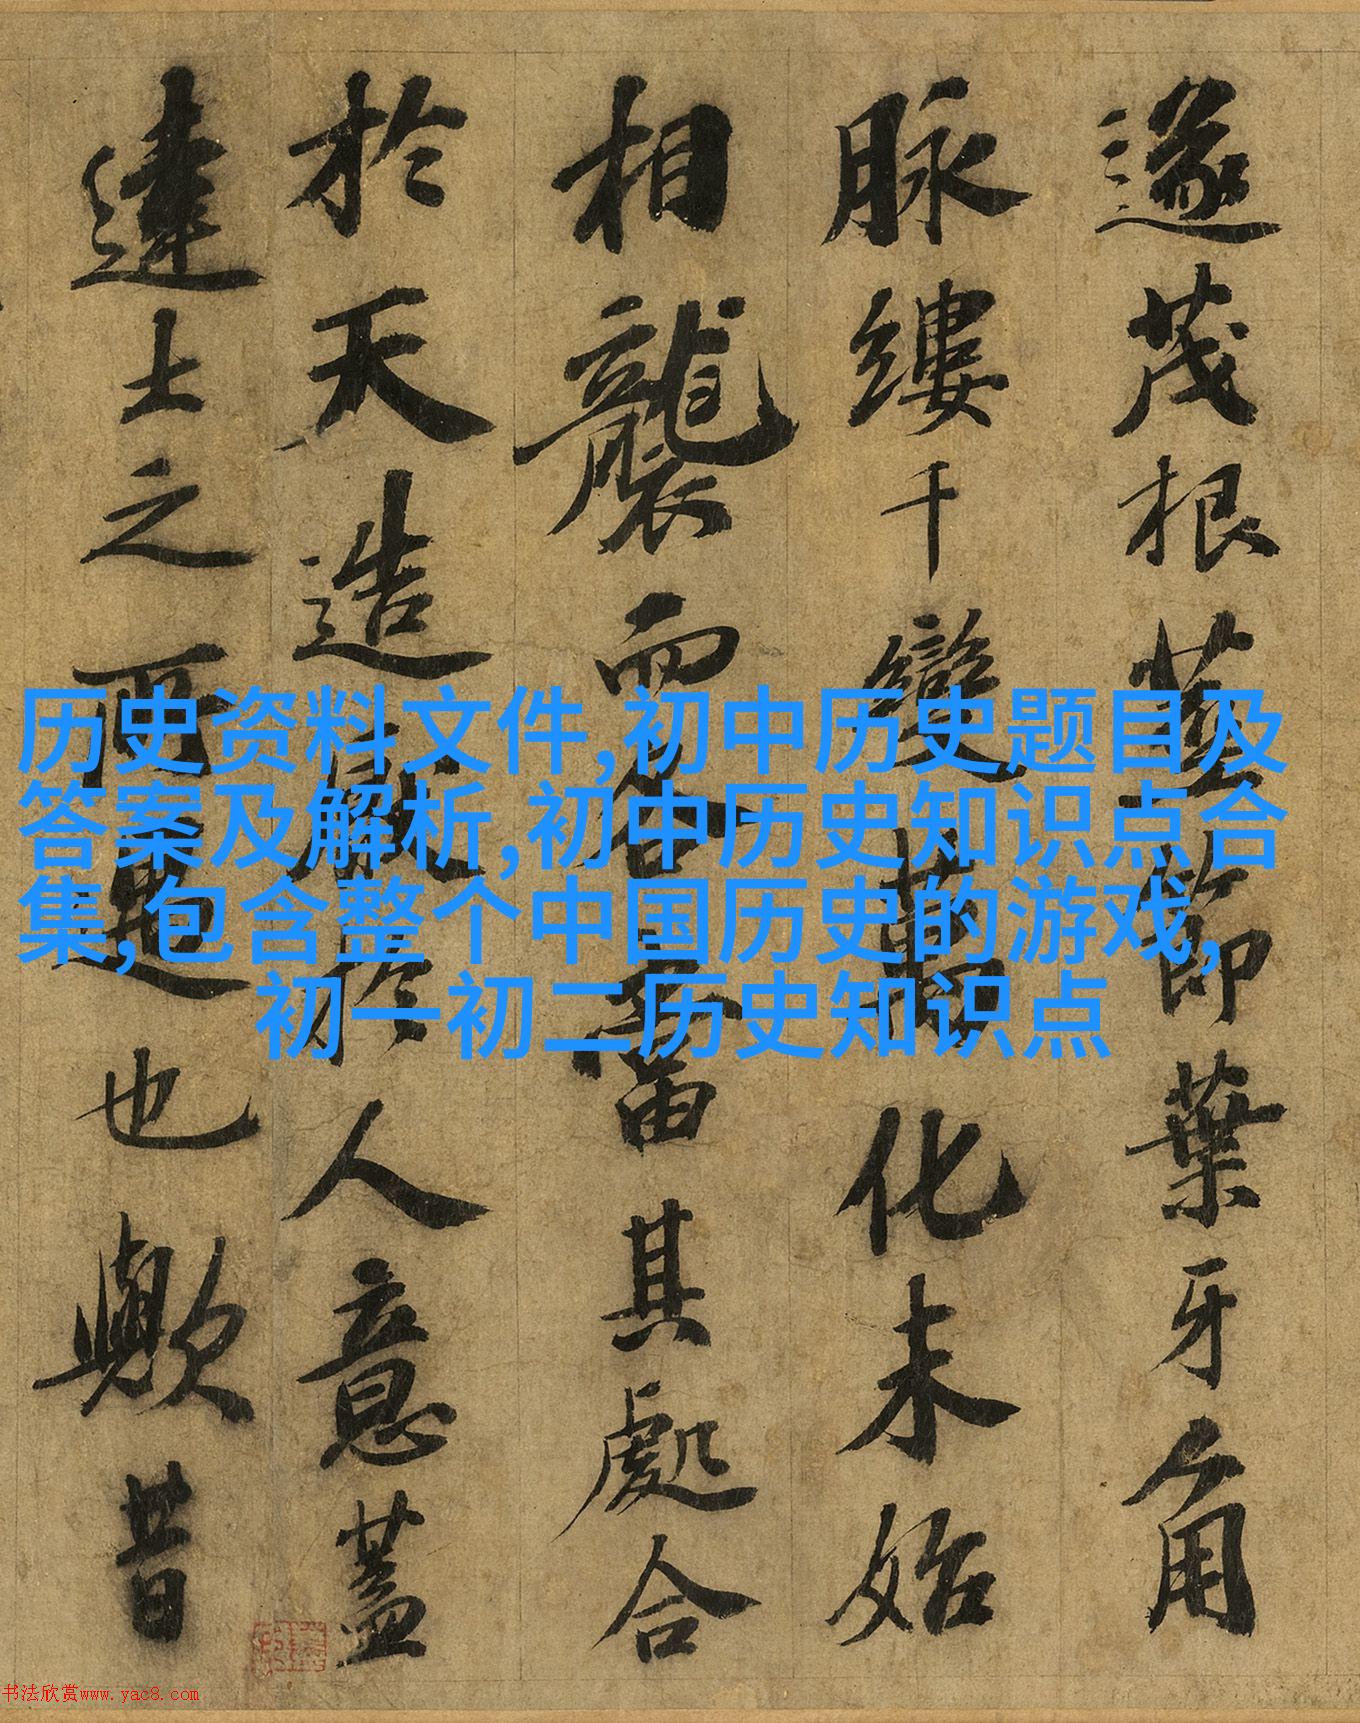 遂茂根莖節葉牙角
脉縷千變萬化未始
相襲而各當其處合
於天造厭於人意蓋
達士之所寓也歟昔
历史资料文件,初中历史题目及
答案及解析,初中历史知识点合
集,包含整个中国历史的游戏,
初一初二历史知识点
书法欣赏www.yac8.com